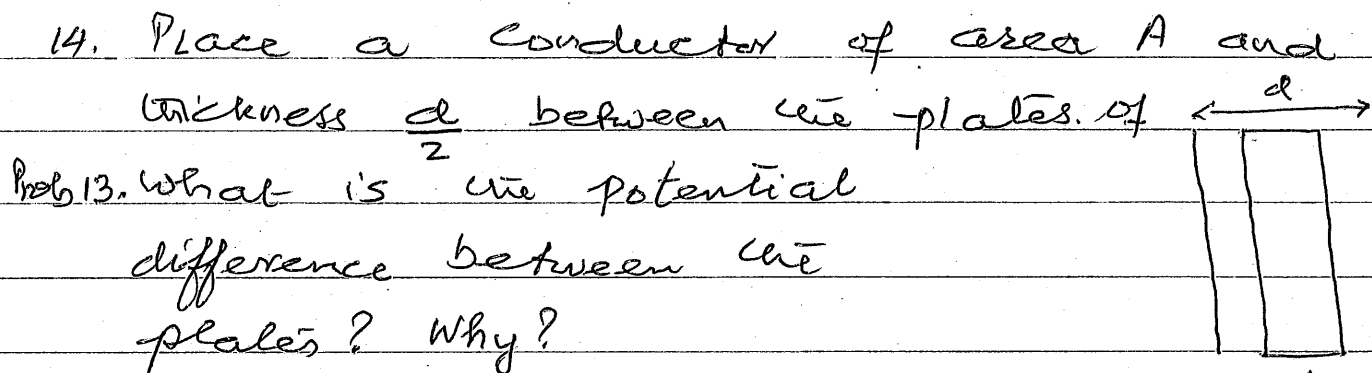 14. Place a conductor of area A and
d
thickness d/2 between the plates. of
Prob 13. What is the potential
difference between the
plates? Why?